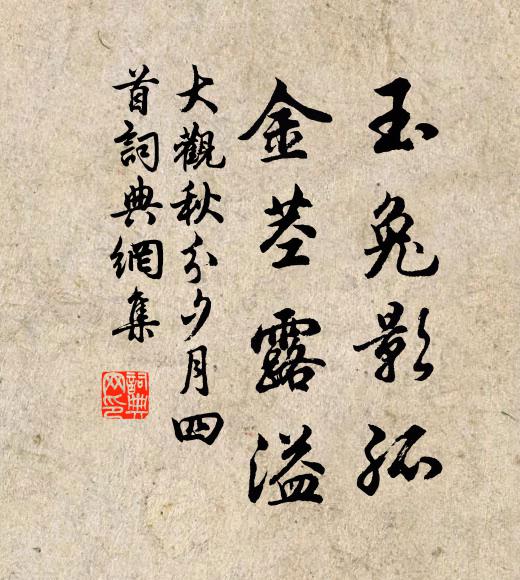 玉兔影孤
金茎露溢
大觀秋分夕月四
首詞典網集
詞典網印